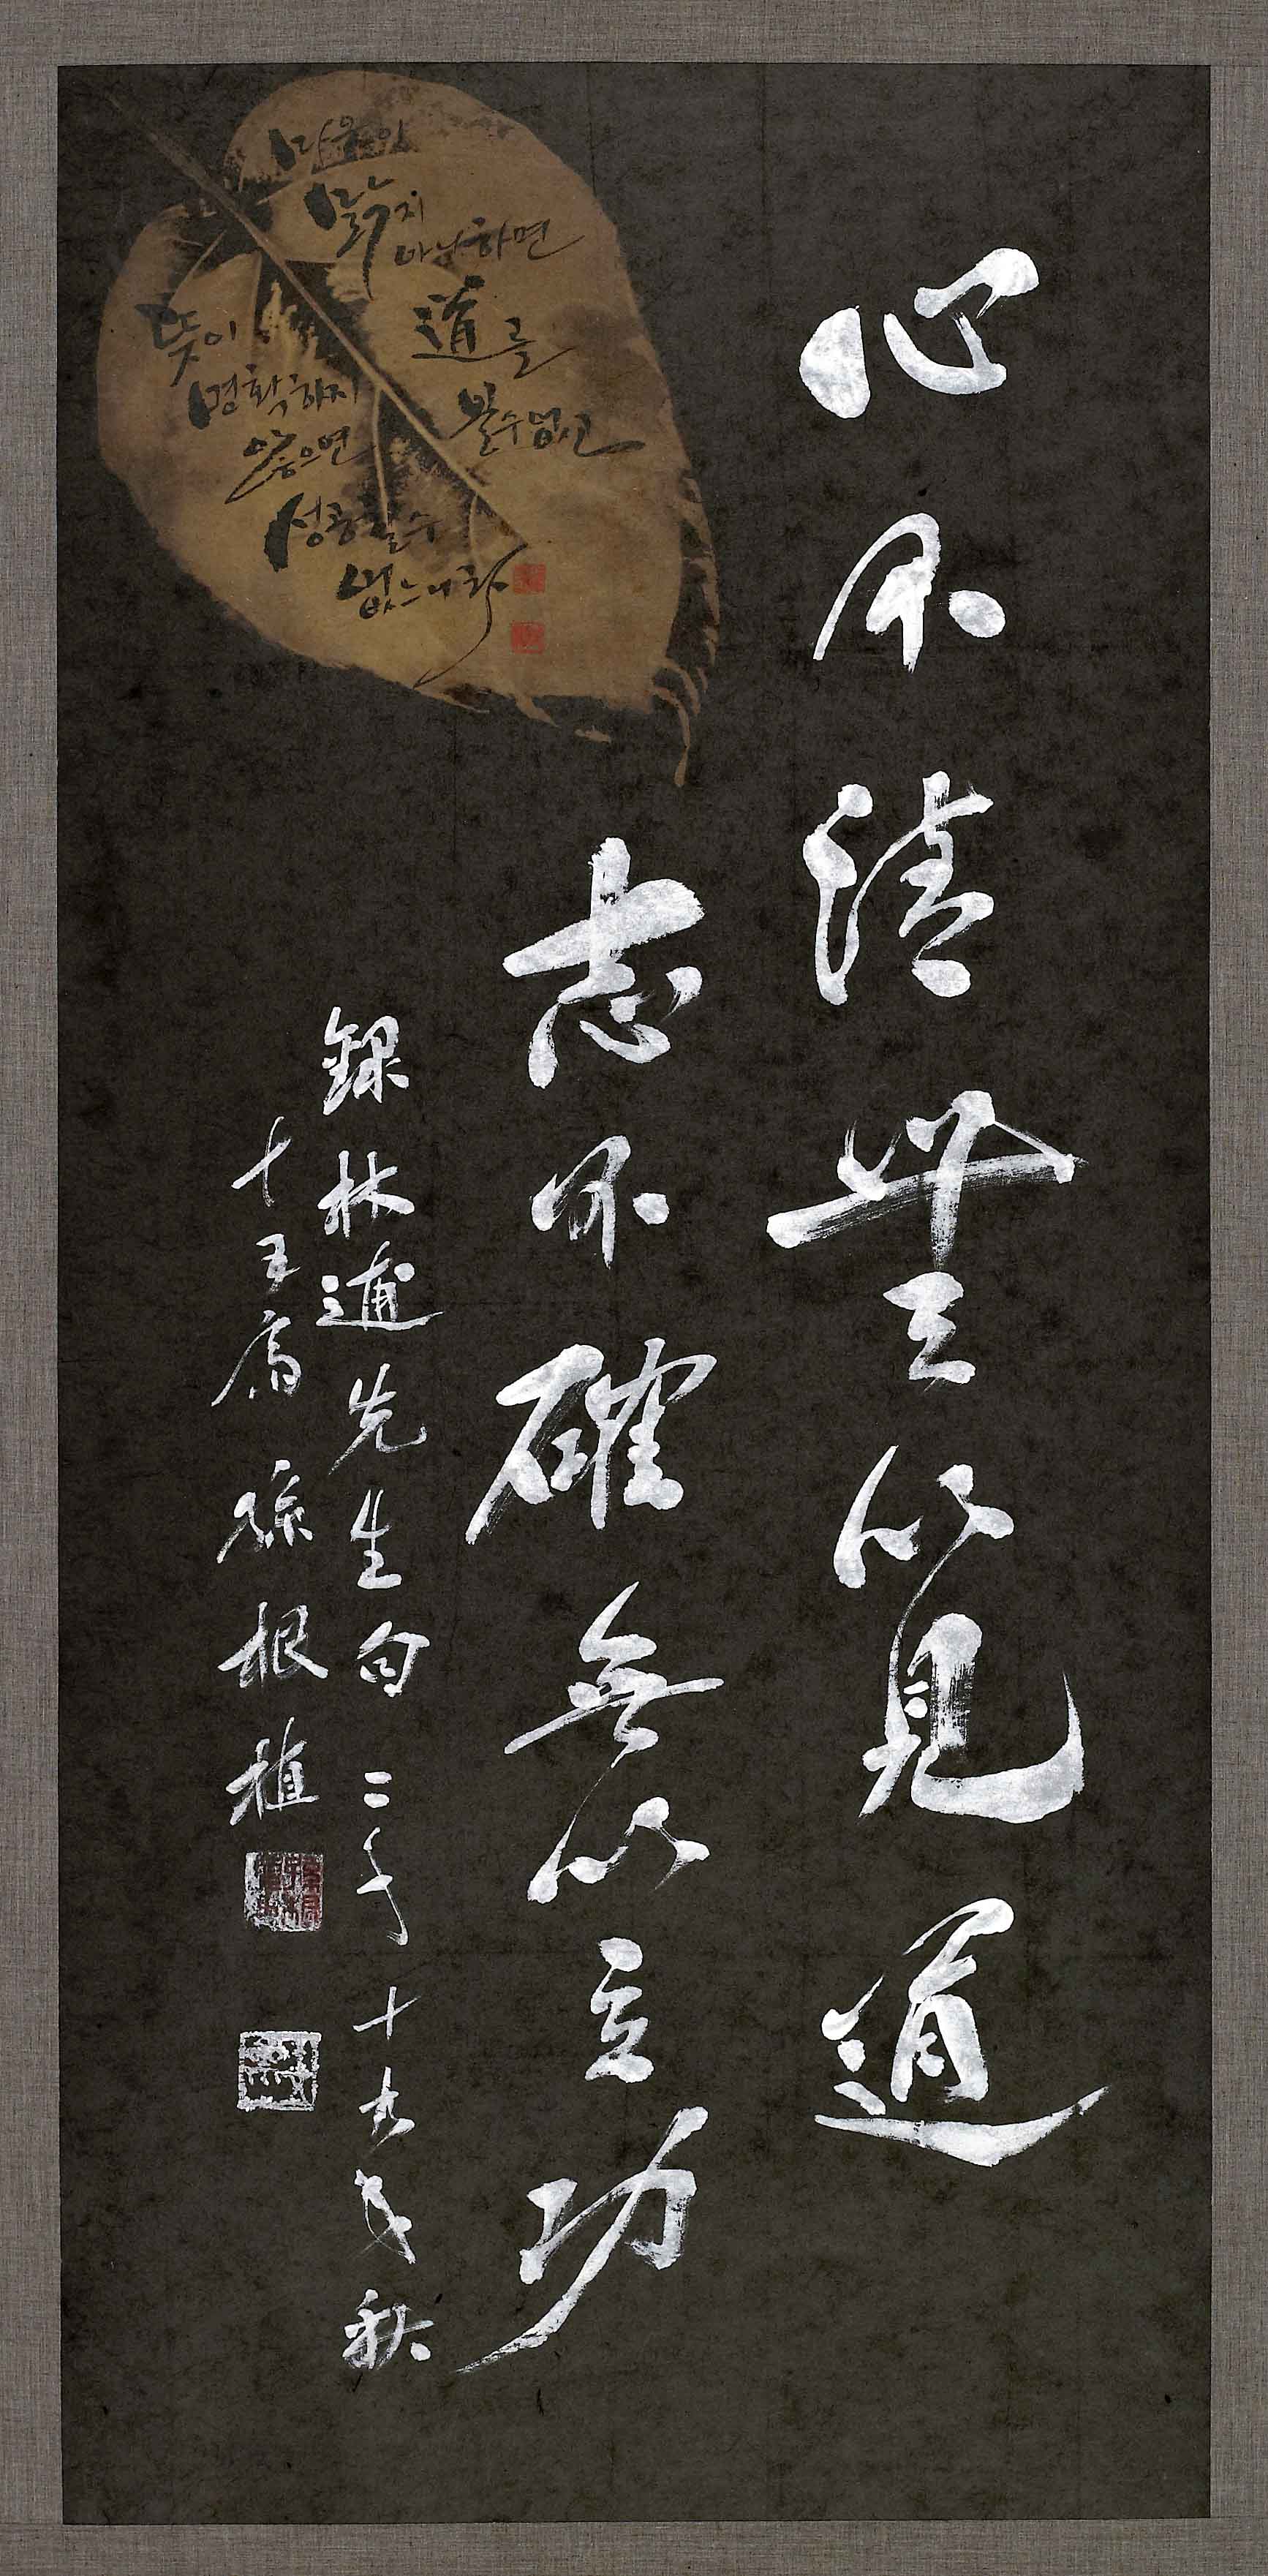 心不清無以見道
志不確無以立功
錄林逋先生句 二千十九年秋
孫根植
마음이
맑지
아니하면
道를
볼 수 없고
뜻이
명확하지
않으면
성공할 수
없느니라